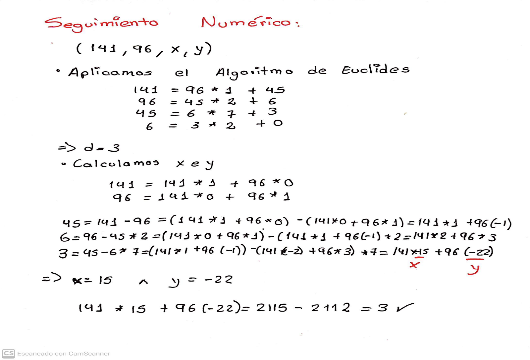 Seguimiento Numérico:
(141, 96, x, y)
• Aplicamos el Algoritmo de Euclides
141 = 96 * 1 + 45
96 = 45 * 2 + 6
45 = 6 * 7 + 3
6 = 3 * 2 + 0
=> d = 3
• Calculamos x e y
141 = 141 * 1 + 96 * 0
96 = 141 * 0 + 96 * 1
45 = 141 - 96 = (141 * 1 + 96 * 0) - (141 * 0 + 96 * 1) = 141 * 1 + 96 (-1)
6 = 96 - 45 * 2 = (141 * 0 + 96 * 1) - (141 * 1 + 96 (-1) * 2 = 141 * 2 + 96 * 3
3 = 45 - 6 * 7 = (141 * 1 + 96 (-1)) - (141 (-2) + 96 * 3) * 7 = 141 * 15 + 96 (-22)
x y
=> x = 15 ∧ y = -22
141 * 15 + 96 (-22) = 2115 - 2112 = 3 ✓
CS Escaneado con CamScanner